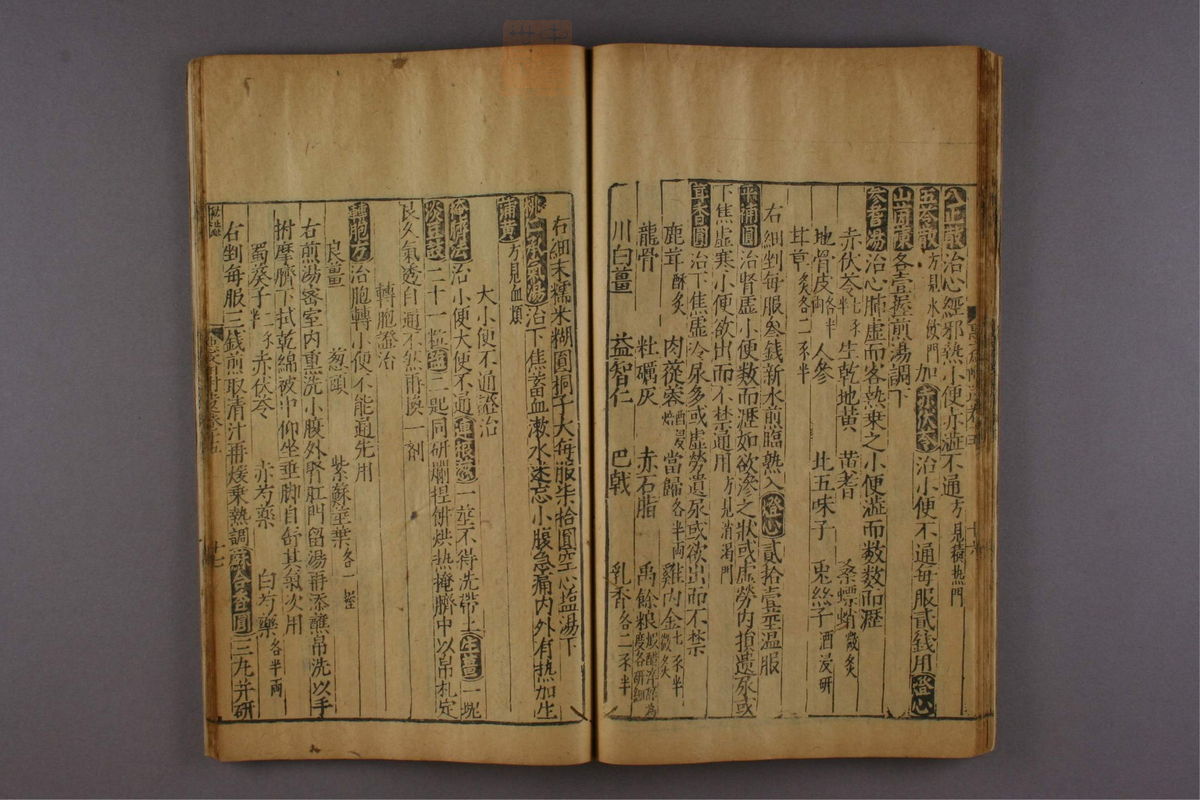 八正散治心經邪熱小便亦澁不通方見積热門
五苓散方見水飲門加赤茯苓治小便不通每服貳錢用燈心
各壹握煎湯調下
參耆湯治心肺虛而客熱乗之小便澁而数数而瀝
赤茯苓七 半 生乾地黃 黄耆 桑螵蛸微炙
地骨皮各半兩 人參 北五味子 兎絲子酒浸研
茸草炙各二 半
右細剉每服叁錢新水煎臨熟入燈心貳拾壹莖温服
補圓治肾虛小便数而瀝如欲滲之狀或虛勞内損遺尿或
下焦虛寒小便欲出而不禁通用方見消渴門
茸香圓治下焦虛冷尿多或虛勞遺尿或欲出而不禁
鹿茸酥炙 肉蓯蓉酒浸焙 當歸各半兩 雞内金微炙七 半
龍骨 牡礪灰 赤石脂 禹餘粮 各研細
川白薑 益智仁 巴戟 乳香各二 半
右細末糯米糊圓桐子大每服柒拾圓空心盐湯下
桃仁承氣湯治下焦蓄血漱水迷忘小腹急痛内外有热加生
蒲黄方見血類
大小便不通證治
治小便大便不通連根葱一莖不得洗帶土生薑一塊
淡豆豉二十一粒盐二匙同研爛捏餅烘热掩臍中以帛札定
良久氣透自通不然再換一剤
轉胞證治
轉胞方治胞轉小便不能通先用
良薑 葱頭 紫蘇莖葉各一握
右煎湯密室内熏洗小腹外腎肛門留湯再添蘸帛洗以手
拊摩臍下拭乾綿被中仰坐垂脚自舒其氣次用
蜀葵子 半 赤伏苓 赤芍藥 白芍藥各半兩
右剉每服三錢煎取清汁再煖乗熱調蘇合香圓三丸并研